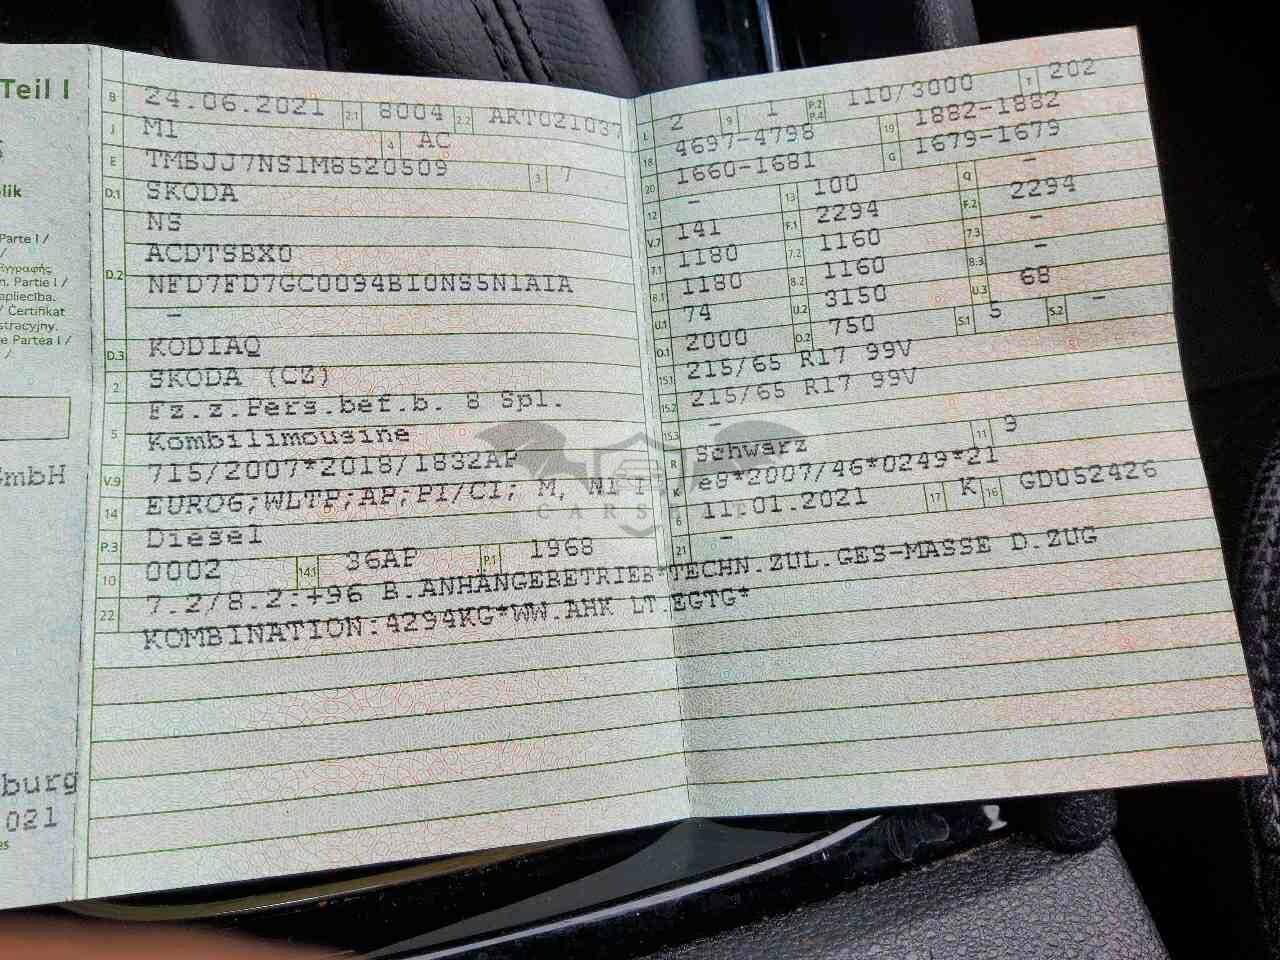 Teil I
olik
Parte I /
Εγγραφής
n. Partie I /
apliecība.
/ Certifikat
stracyjny.
e Partea I /
GmbH
burg
021
es
B 24.06.2021 2.1 8004 2.2 ART021037
J M1 4 AC
E TMBJJ7NS1M8520509 3 7
D.1 SKODA
NS
D.2 ACDTSBX0
NFD7FD7GC0094BI0NS5N1AIA
–
D.3 KODIAQ
2 SKODA (CZ)
5 Fz.z.Pers.bef.b. 8 Spl.
Kombilimousine
V.9 715/2007*2018/1832AP
14 EURO6;WLTP;AP;PI/CI; M, N1 I
P.3 Diesel
10 0002 14.1 36AP P.1 1968
22 7.2/8.2:+96 B.ANHÄNGEBETRIEB*TECHN.ZUL.GES-MASSE D.ZUG
KOMBINATION:4294KG*WW.AHK LT.EGTG*
L 2 9 1 P.2 P.4 110/3000 T 202
18 4697-4798 19 1882-1882
20 1660-1681 G 1679-1679
12 – 13 100 Q –
V.7 141 F.1 2294 F.2 2294
7.1 1180 7.2 1160 7.3 –
8.1 1180 8.2 1160 8.3 –
U.1 74 U.2 3150 U.3 68
O.1 2000 O.2 750 S.1 5 S.2 –
15.1 215/65 R17 99V
15.2 215/65 R17 99V
15.3 –
R Schwarz 11 9
K e8*2007/46*0249*21
6 11.01.2021 17 K 16 GD052426
21 –